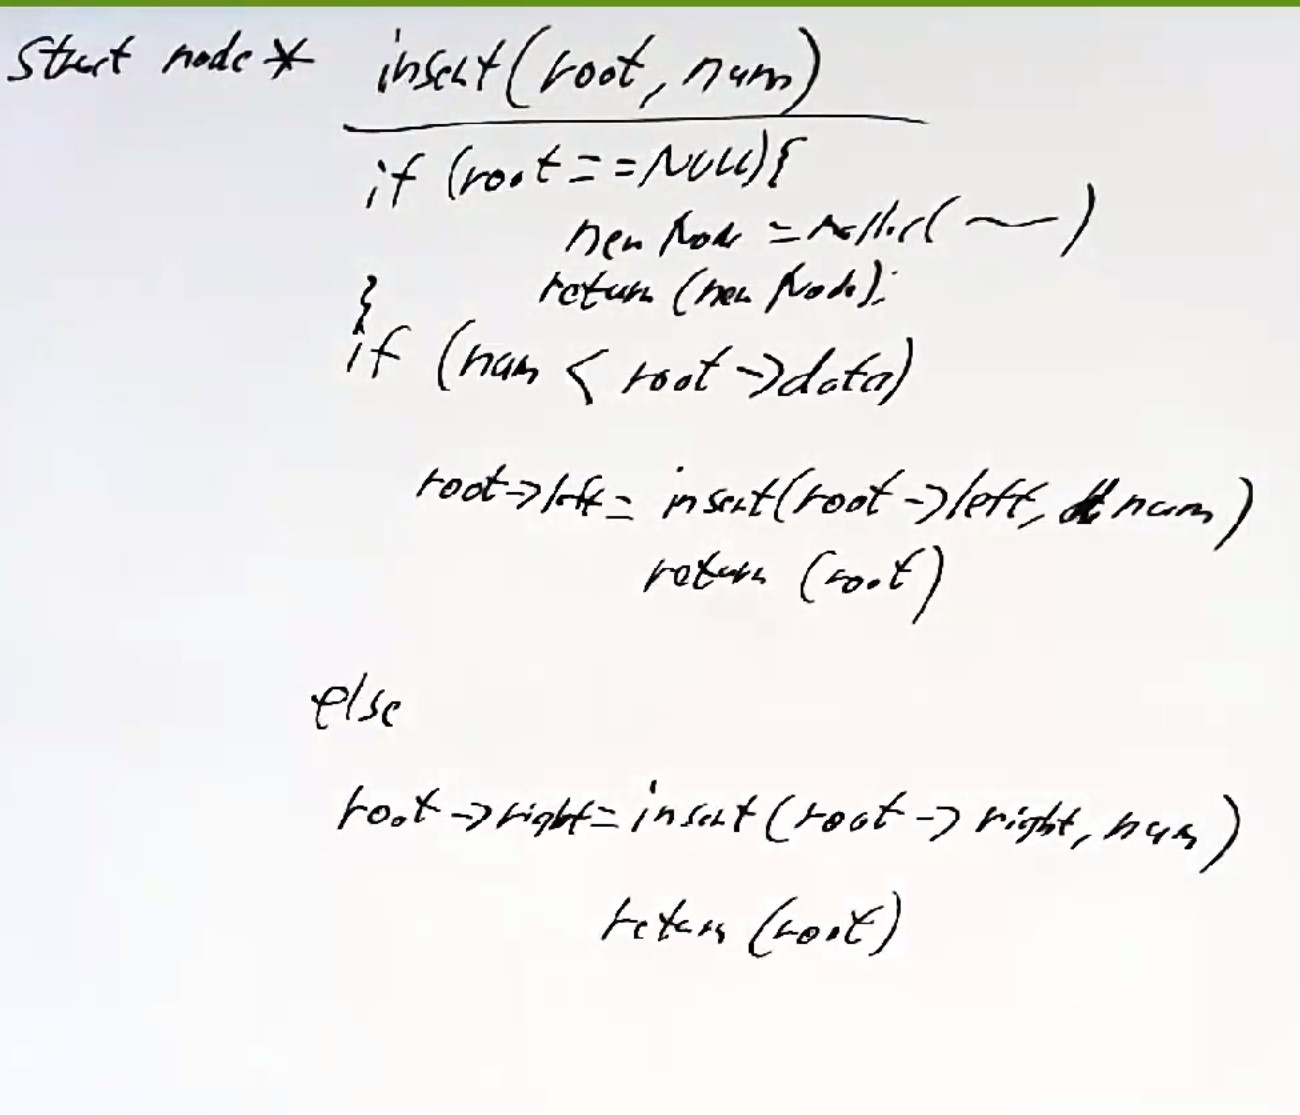 struct node * insert(root, num)
if (root == NULL){
new Node = malloc( )
return (new Node);
}
if (num < root->data)
root->left = insert(root->left, num)
return (root)
else
root->right = insert(root->right, num)
return (root)